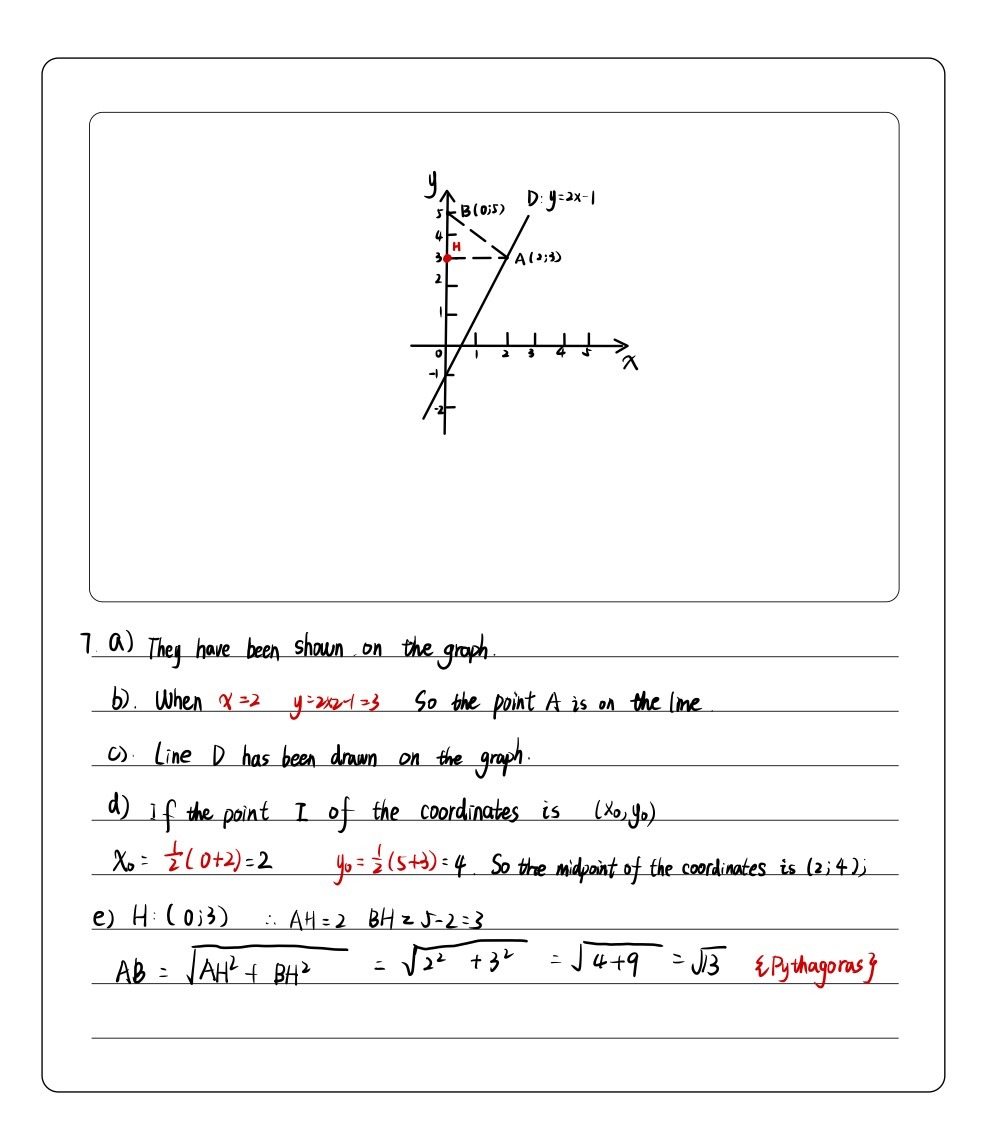 y
D: y=2x-1
5 B(0;5)
4
H
3 A(2;3)
2
1
0 1 2 3 4 5
x
-1
-2
7. a) They have been shown on the graph.
b). When x=2 y=2x2-1=3 So the point A is on the line.
c). Line D has been drawn on the graph.
d) if the point I of the coordinates is (x₀,y₀)
x₀ = 1/2(0+2)=2 y₀=1/2(5+3)=4. So the midpoint of the coordinates is (2;4);
e) H:(0;3) ∴ AH=2 BH=5-2=3
AB = √(AH²+BH²) = √(2²+3²) = √(4+9) = √13 {Pythagoras}